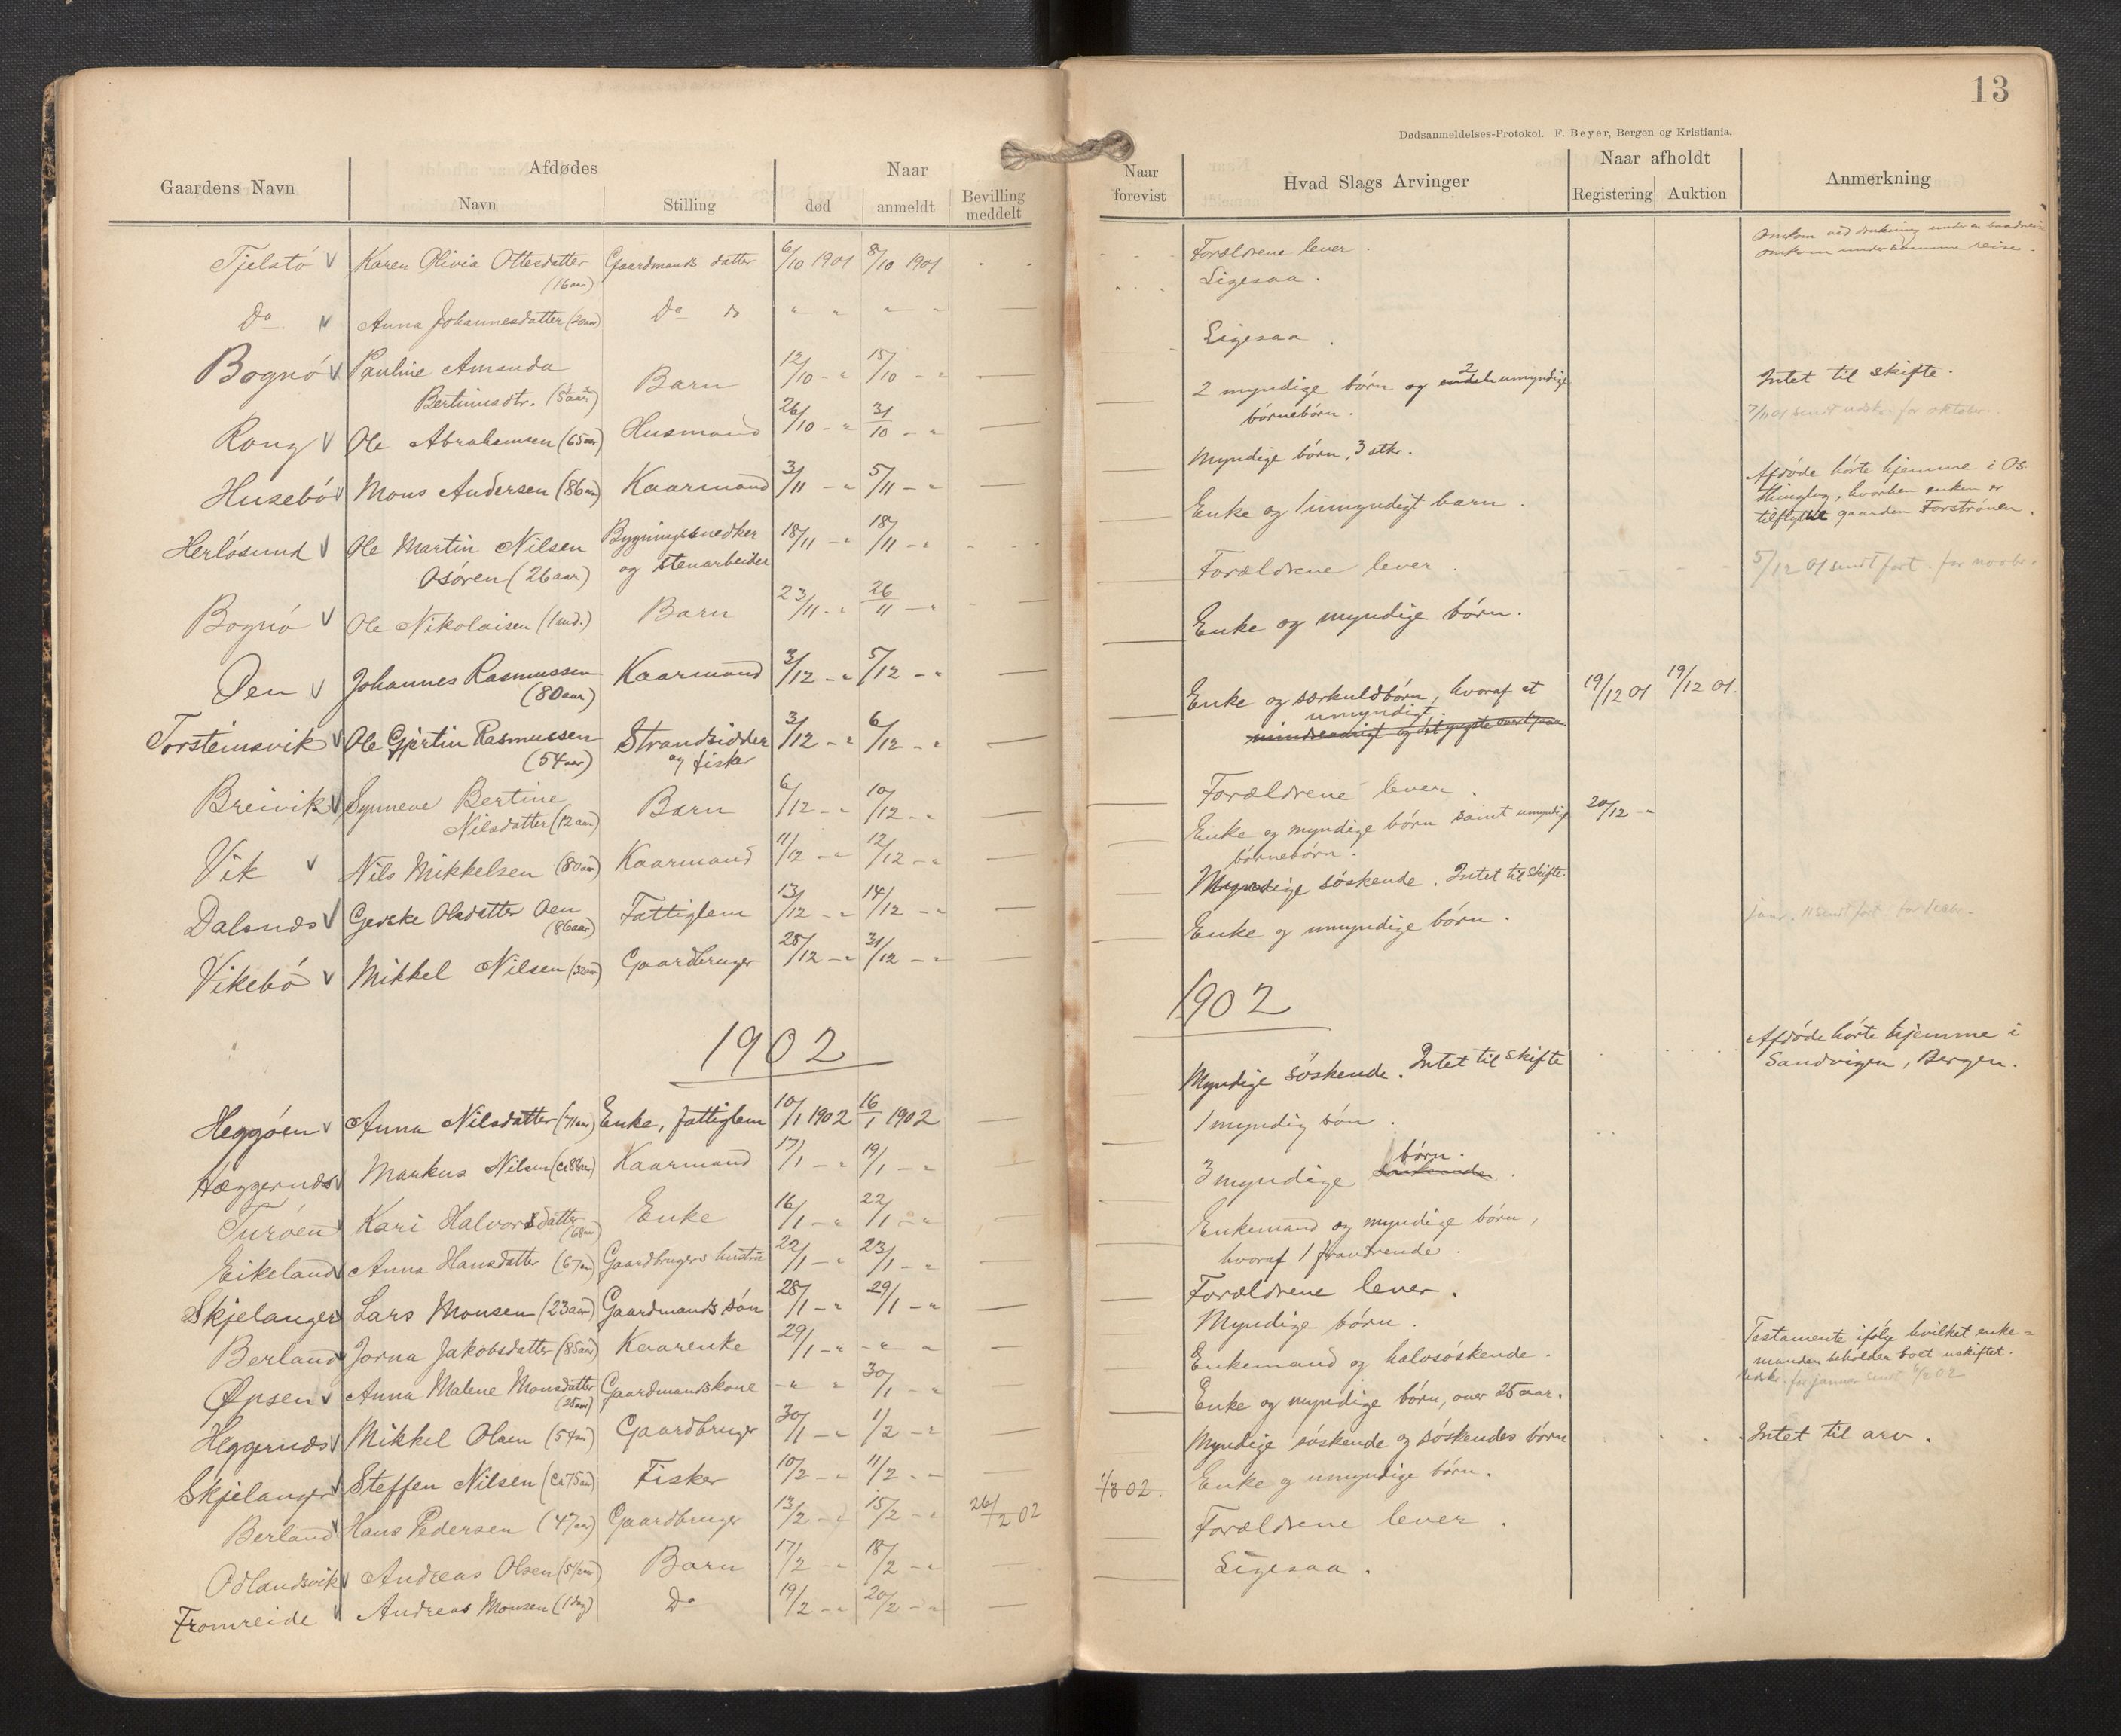 13
Dødsanmeldelses-Protokol. F. Beyer, Bergen og Kristiania.
Gaardens Navn
Afdødes
Navn
Stilling
Naar
død
anmeldt
Bevilling meddelt
Tjelstö Karen Olivia Ottesdatter Gaardmands datter 6/10 1901 8/10 1901
(16 aar)
Do Anna Johannesdatter (20 aar) Do do " " " "
Bognö Pauline Amanda
Bertinusdtr. (5 aar) Barn 12/10 - " 15/10 - "
Rong Ole Abrahamsen (65 aar) Husmand 26/10 - " 31/10 - "
Husebö Mons Andersen (86 aar) Kaarmand 3/11 - " 5/11 - "
Herlösund Ole Martin Nilsen Bygningssnedker 18/11 - " 18/11 - "
Osören (26 aar) og stenarbeider
Bognö Ole Nikolaisen (1 md.) Barn 23/11 - " 26/11 - "
Öen Johannes Rasmussen Kaarmand 3/12 - " 5/12 - "
(80 aar)
Torsteinsvik Ole Gjertin Rasmussen Strandsidder 3/12 - " 6/12 - "
(54 aar) og fisker
Breivik Synneve Bertine Barn 6/12 - " 10/12 - "
Nilsdatter (12 aar)
Vik Nils Mikkelsen (80 aar) Kaarmand 11/12 - " 12/12 - "
Dalsnæs Gjerske Olsdatter Oen Fattiglem 13/12 - " 14/12 - "
(86 aar)
Vikebö Mikkel Nilsen (32 aar) Gaardbruger 28/12 - " 31/12 - "
1902
Heggöen Anna Nilsdatter (71 aar) Enke, fattiglem 10/1 1902 16/1 1902
Hæggernæs Markus Nilsen (ca 88 aar) Kaarmand 17/1 - " 19/1 - "
Turöen Kari Halvorsdatter Enke 16/1 - " 22/1 - "
(68 aar)
Eikeland Anna Hansdatter (67 aar) Gaardbrugers hustru 22/1 - " 23/1 - "
Skjelanger Lars Monsen (23 aar) Gaardmands sön 28/1 - " 29/1 - "
Berland Jorna Jakobsdatter (85 aar) Kaarenke 29/1 - " - " "
Öpsen Anna Malene Monsdatter Gaardmandskone - " " 30/1 - "
(25 aar)
Heggernæs Mikkel Olsen (54 aar) Gaardbruger 30/1 - " 1/2 - "
Skjelanger Steffen Nilsen (ca 75 aar) Fisker 10/2 - " 11/2 - "
Berland Hans Pedersen (47 aar) Gaardbruger 13/2 - " 15/2 - " 26/2 02
Odlandsvik Andreas Olsen Barn 17/2 - " 18/2 - "
Fromreide Andreas Monsen (1 dag) Do 19/2 - " 20/2 - "
Naar forevist
Hvad Slags Arvinger
Naar afholdt
Registering
Auktion
Anmerkning
Forældrene lever.
Omkom ved drukning under en
omkom under samme reise.
Ligesaa.
Ligesaa.
2 myndige börn og 2 umyndige
börnebörn.
Intet til skifte.
7/11 01 sendt udskr. for oktober
Myndige börn, 3 stkr.
Enke og 1 umyndigt barn.
Afdöde hörte hjemme i Os
thinglag, hvorhen enken er
tilflyttet gaarden Forströnen.
Forældrene lever.
5/12 01 sendt fort. for novbr.
Enke og myndige börn.
Enke og særkuldbörn, hvoraf et 19/12 01 19/12 01.
umyndigt.
Forældrene lever.
Enke og myndige börn samt umyndige 20/12 - "
börnebörn.
Myndige söskende. Intet til skifte.
Enke og umyndige börn.
1902
Myndige söskende. Intet til skifte
Afdöde hörte hjemme i
Sandvigen, Bergen.
1 myndig sön.
3 myndige börn.
Enkemand og myndige börn,
hvoraf 1 fraværende.
Forældrene lever.
Myndige börn.
Enkemand og halvsöskende.
Testamente ifölge hvilket enke=
manden beholder boet uskiftet.
Udskr. for januar sendt 5/2 02
Enke og myndige börn, over 25 aar.
Myndige söskende og söskendes börn
Intet til arv.
1/3 02. Enke og umyndige börn.
Forældrene lever.
Ligesaa.